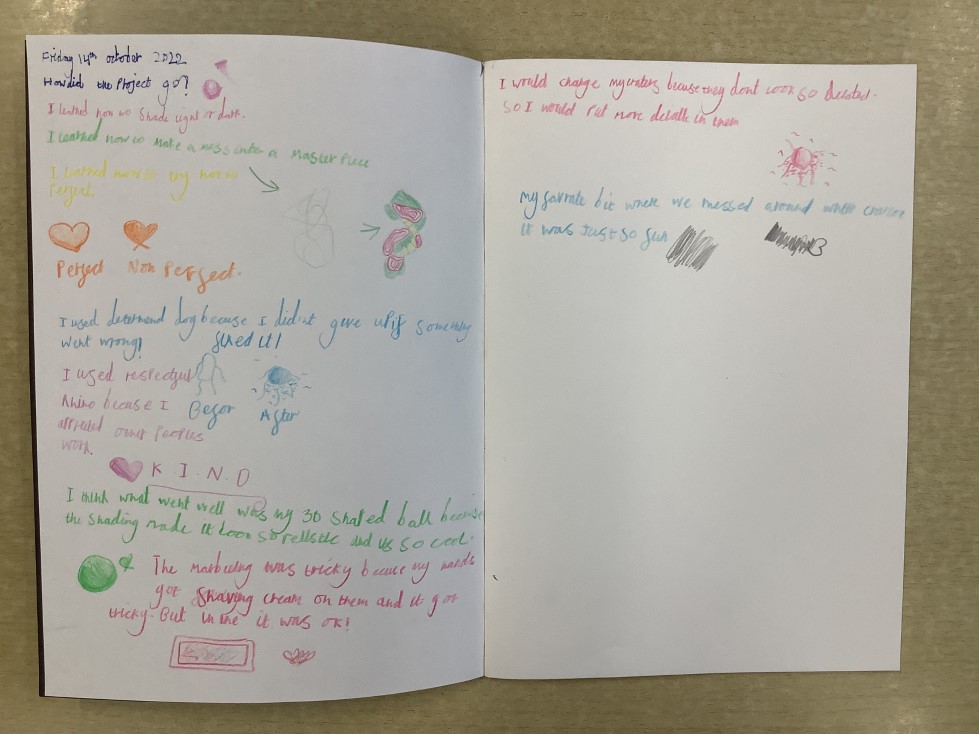 Friday 14th october 2022
How did the Project go?
I learned how to Shade light or dark.
I learned how to make a mess into a Master Piece
I learned how to try not to
Perfect.
Perfect Non Perfect.
I used determend dog because I didnt give up if something
went wrong!
fixed it!
I used respectful
Rhino because I
Befor After
other Peoples
work.
K I N D
I think what went well was my 3D Shaded ball because
the Shading made it look so and its so cool.
The Marbeling was tricky because my hands
got Shaving cream on them and it got
tricky. But in the it was ok!
I would change my craters because they dont look so
So I would Put more in them
my favrate bit where we messed around with
it was Just so fun